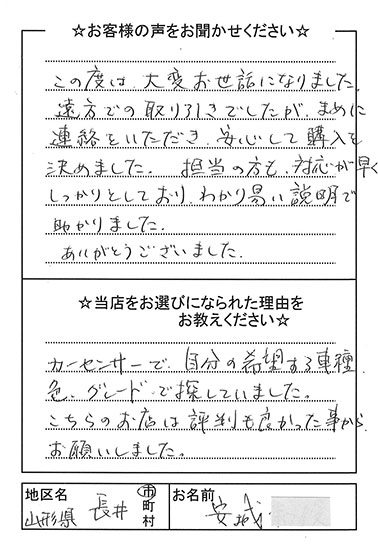 ☆お客様の声をお聞かせください☆
この度は、大変お世話になりました。
遠方での取り引きでしたが、まめに
連絡をいただき、安心して購入を
決めました。 担当の方も、対応が早く
しっかりとしており、わかり易い説明で
助かりました。
ありがとうございました。
☆当店をお選びになられた理由を
お教えください☆
カーセンサーで、自分の希望する車種、
色、グレードで探していました。
こちらのお店は評判も良かった事から
お願いしました。
地区名 山形県 長井 市町村 お名前 安城